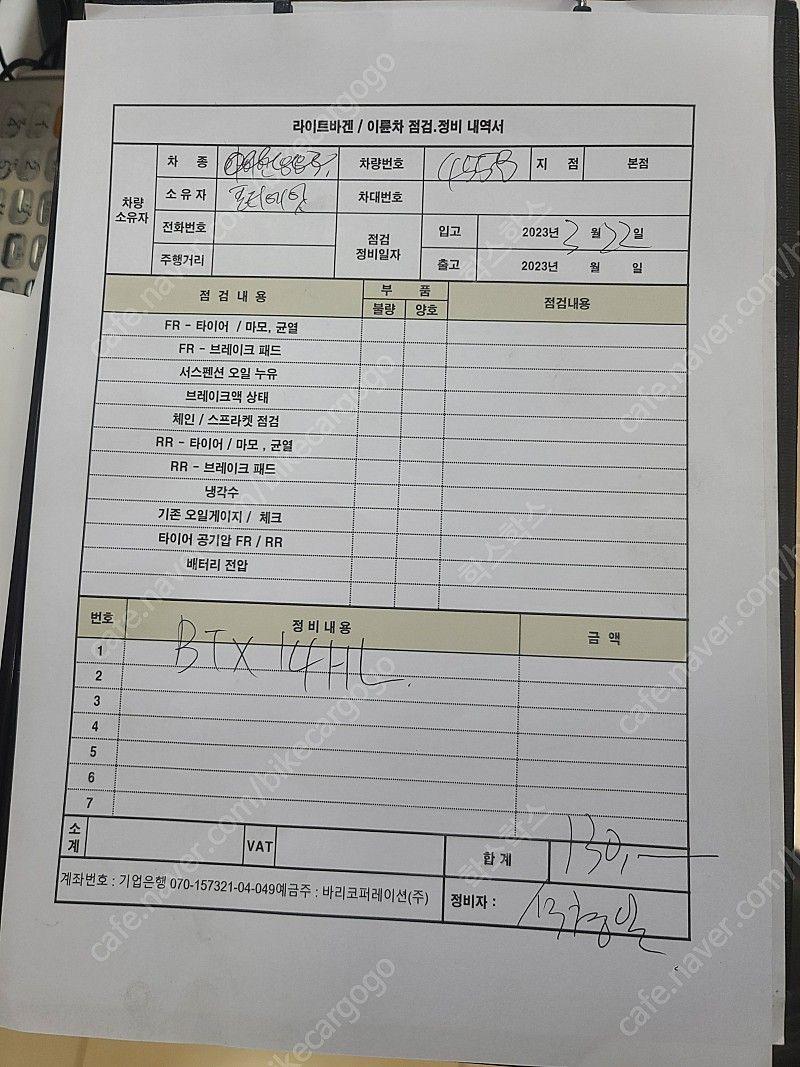 라이트바겐 / 이륜차 점검.정비 내역서
차량 소유자
차 종
차량번호
지 점 본점
소 유 자
차대번호
전화번호
점검 정비일자
입고 2023년 3 월 22 일
주행거리
출고 2023년 월 일
점 검 내 용
부 품
점검내용
불량 양호
FR - 타이어 / 마모, 균열
FR - 브레이크 패드
서스펜션 오일 누유
브레이크액 상태
체인 / 스프라켓 점검
RR - 타이어 / 마모 , 균열
RR - 브레이크 패드
냉각수
기존 오일게이지 / 체크
타이어 공기압 FR / RR
배터리 전압
번호 정 비 내 용 금 액
1 BTX 14HL
2
3
4
5
6
7
소계 VAT
합 계 130,
계좌번호 : 기업은행 070-157321-04-049예금주 : 바리코퍼레이션(주)
정비자 :
cafe.naver.com/bikecargogo
학스학스